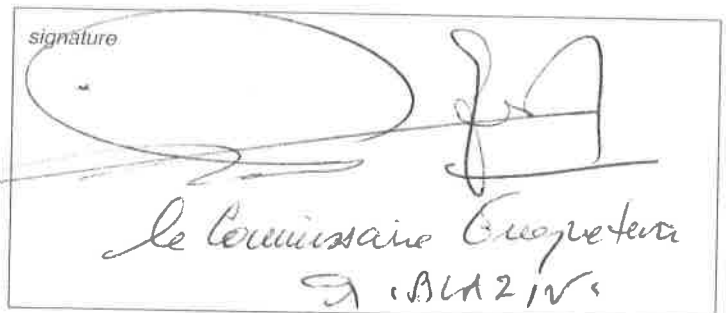 signature
le Commissaire Enquêteur
BLAZIN